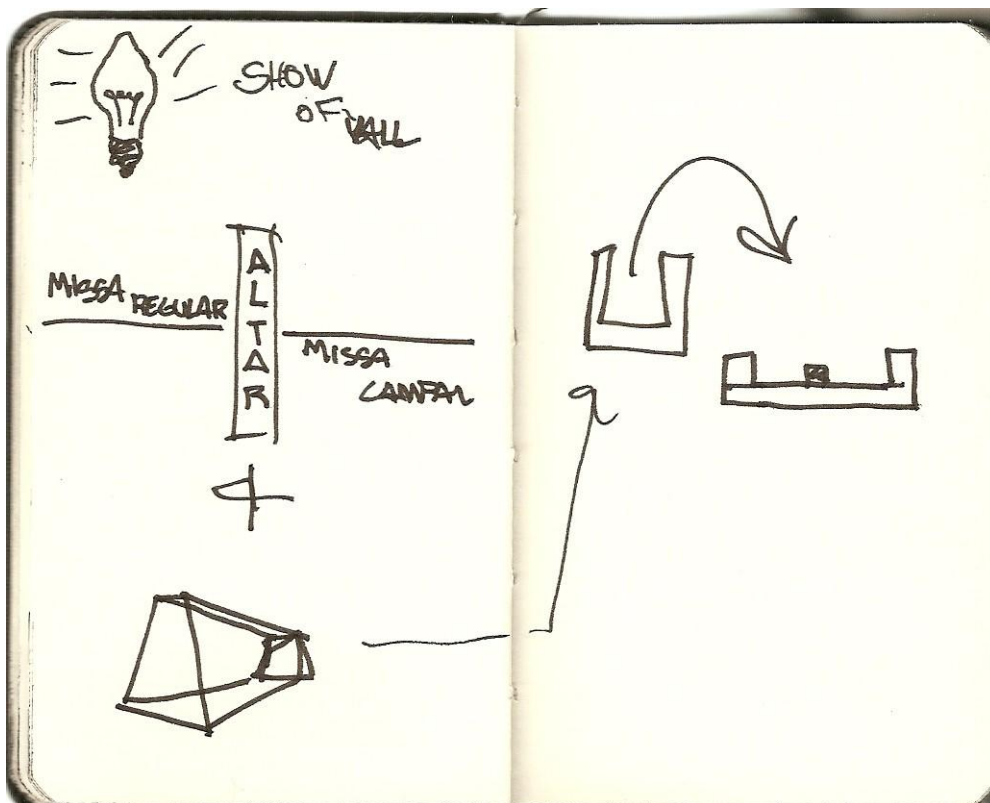 SHOW
OF WALL
MISSA REGULAR
ALTAR
MISSA
CAMPAL